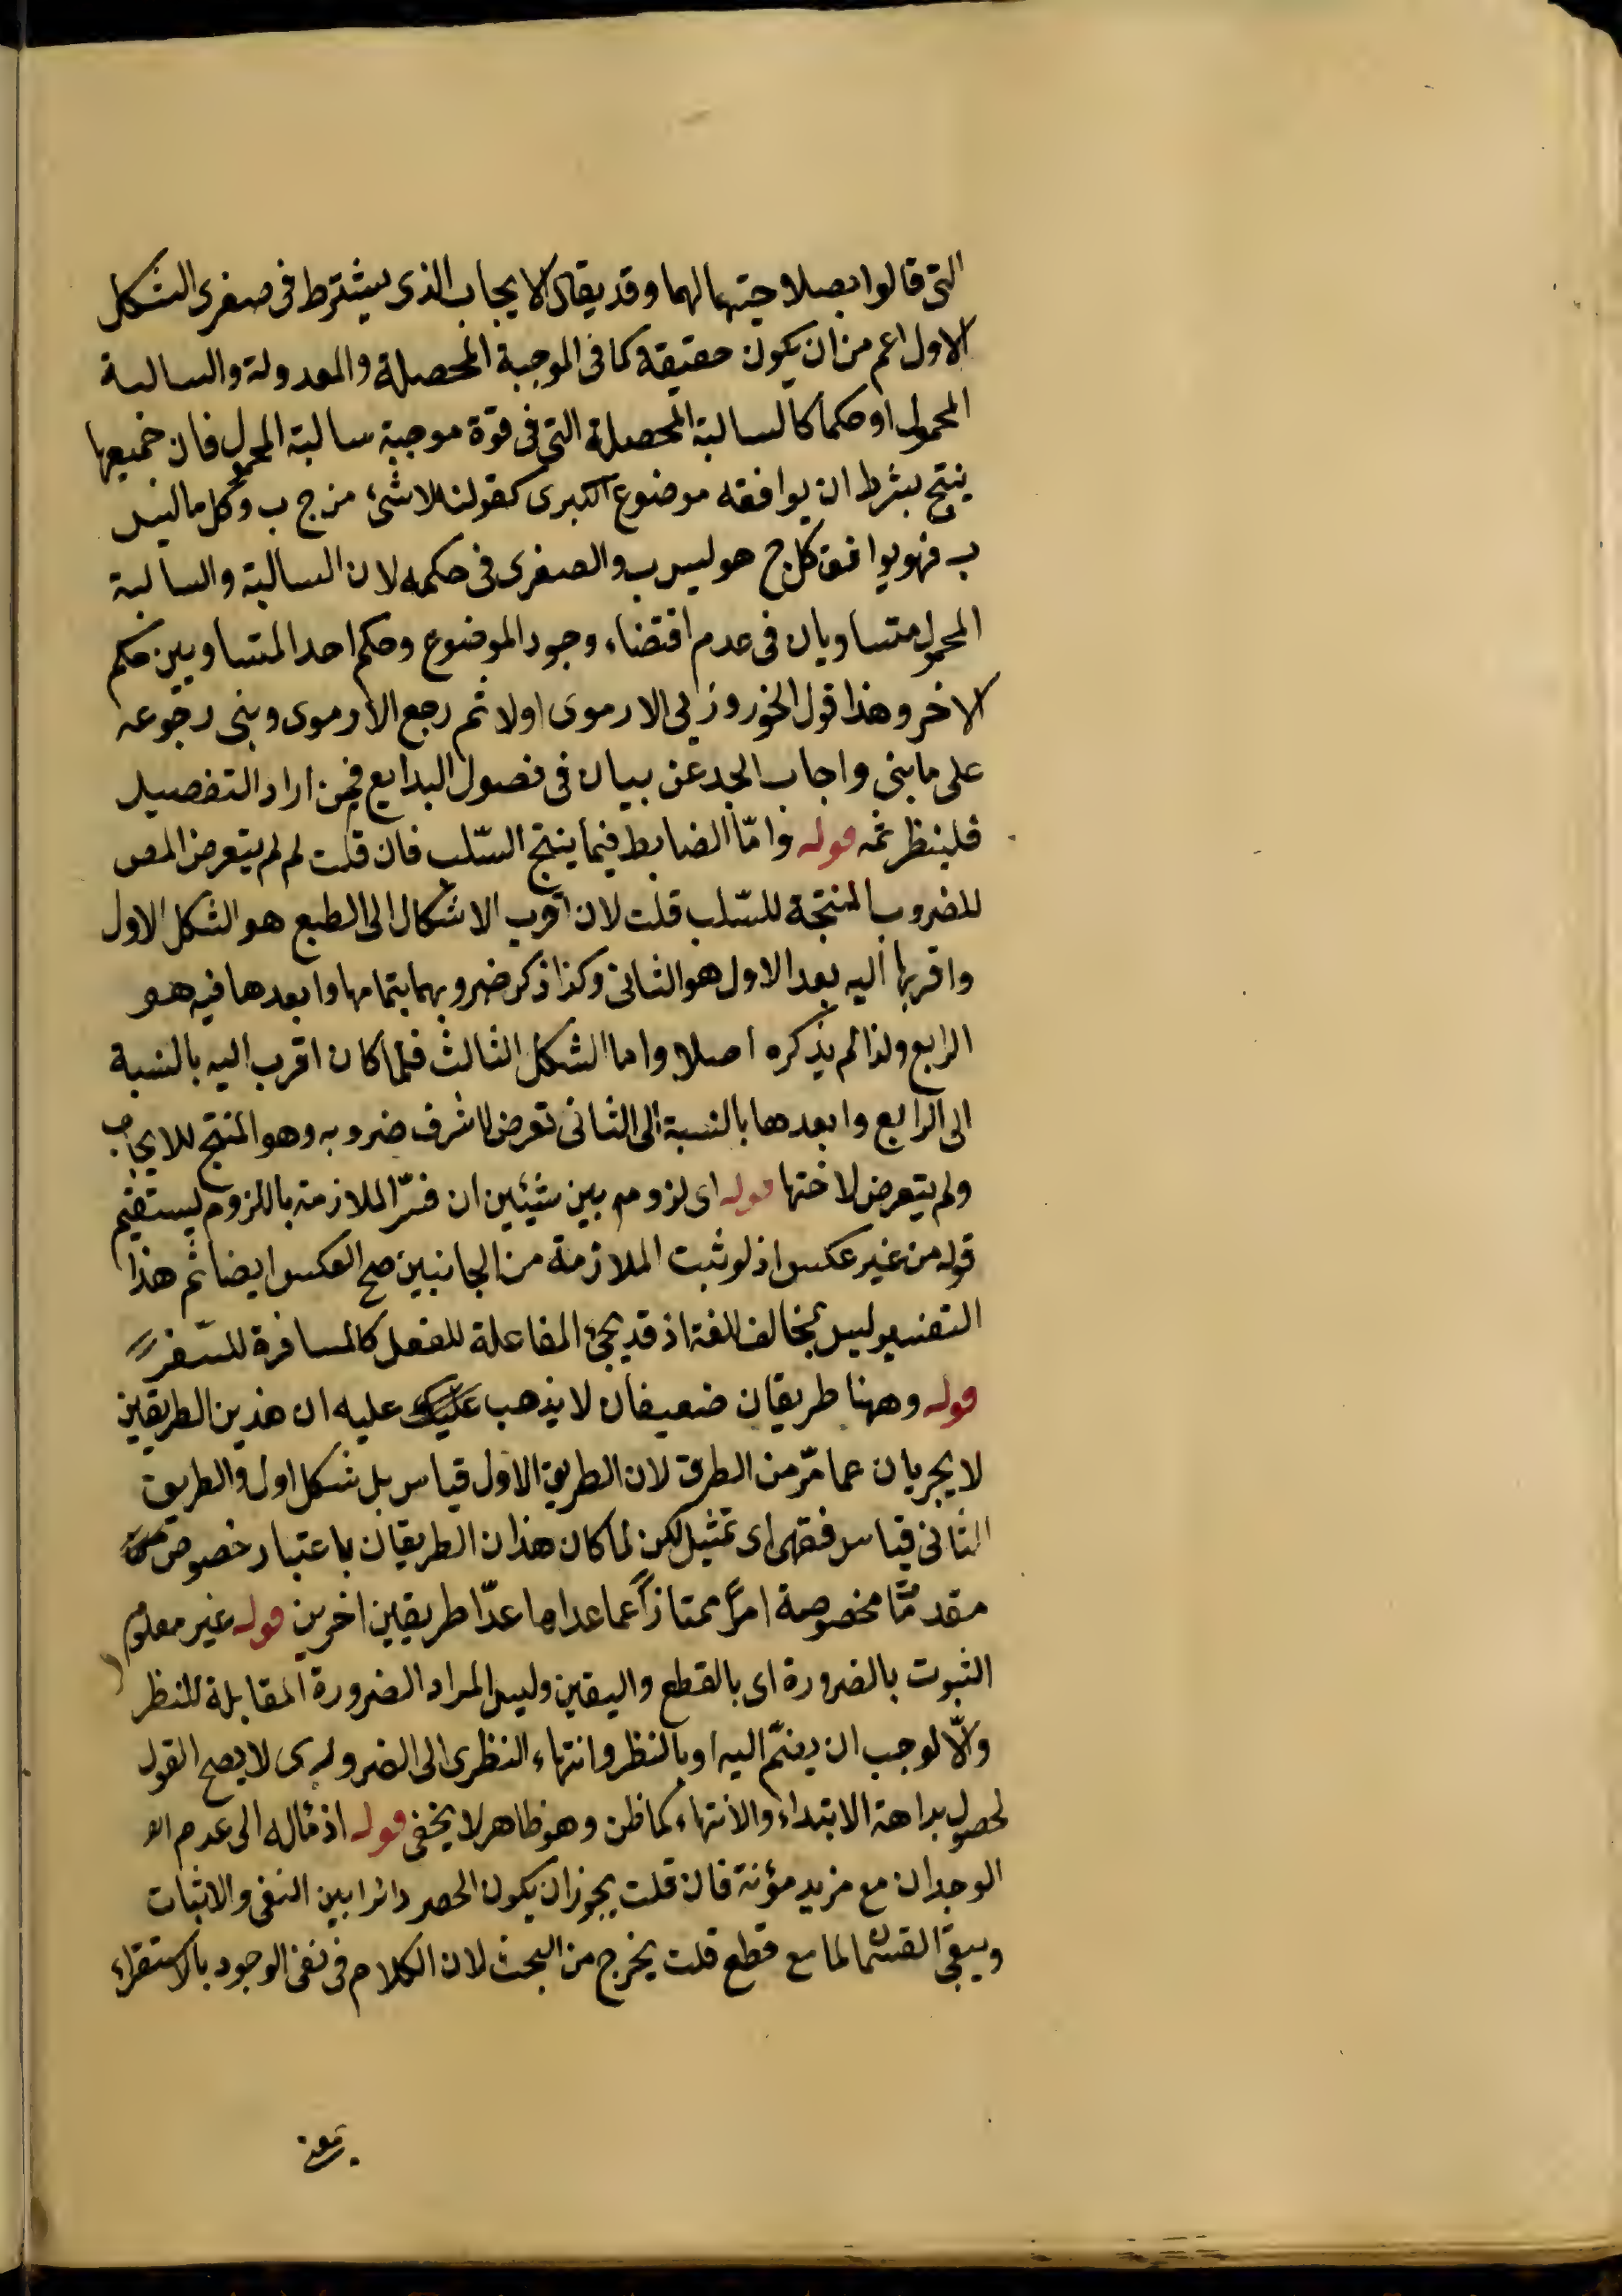 التى قالوا بصلاحيتهما لهما وقد يقال الايجاب الذى يشترط فى صغرى الشكل
الاول اعم من ان يكون حقيقة كما فى الموجبة المحصلة والمعدولة والسالبة
المحمول او حكما كالسالبة المحصلة التى فى قوة موجبة سالبة المحمول فان جميعها
ينتج بشرط ان يوافقه موضوع الكبرى كقولنا لا شئ من ج ب وكل ما ليس
ب فهو يوافق كل ج هو ليس ب والصغرى فى حكمه لان السالبة والسالبة
المحمول متساويان فى عدم اقتضاء وجود الموضوع وحكم احد المتساويين حكم
الاخر وهذا قول الارموى اولا ثم رجع الارموى وبنى رجوعه
على ما بنى واجاب الجد عن بيان فى فصول البدايع فمن اراد التفصيل
فلينظر ثمه قوله واما الضابط فيما ينتج السّلب فان قلت لم لم يتعرض المص
للضروب المنتجة للسّلب قلت لان اقرب الاشكال الى الطبع هو الشكل الاول
واقربها اليه بعد الاول هو الثانى وكذا ذكر ضروبهما بتمامها وابعدها فيه هو
الرابع ولذا لم يذكره اصلا واما الشكل الثالث فلما كان اقرب اليه بالنسبة
الى الرابع وابعدها بالنسبة الى الثانى تعرض لاشرف ضروبه وهو المنتج للايجاب
ولم يتعرض لاختها قوله اى لزوم بين شيئين ان فسّر الملازمة باللزوم ليستقيم
قوله من غير عكس اذ لو ثبت الملازمة من الجانبين صح العكس ايضا ثم هذا
التفسير ليس بمخالف للغة اذ قد يجئ المفاعلة للفعل كالمسافرة للسّفر
قوله وههنا طريقان ضعيفان لا يذهب عليك عليه ان هذين الطريقين
لا يجريان عما مرّ من الطرق لان الطريق الاول قياس بل شكل اول والطريق
الثانى قياس فقهى اى تمثيل لكن لما كان هذان الطريقان باعتبار خصوص
مقدمتا مخصوصة امرًا ممتازًا عما عداها عدّا طريقين اخرين قوله غير معلوم
الثبوت بالضرورة اى بالقطع واليقين وليس المراد الضرورة المقابلة للنظر
والّا لوجب ان يضمّ اليه او بالنظر وانتهاء النظرى الى الضرورى لا يصح القول
لحصول بداهة الابتداء والانتهاء كما ظن وهو ظاهر لا يخفى قوله اذ مثاله الى عدم
الوجدان مع مزيد مؤنة فان قلت يجوز ان يكون الحصر دائرا بين النفى والاثبات
ويبقى مع قطع قلت يخرج من البحث لان الكلام فى نفى الوجود بالاستقراء